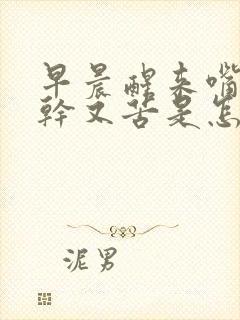 早晨醒来嘴
幹又苦是怎
泥男